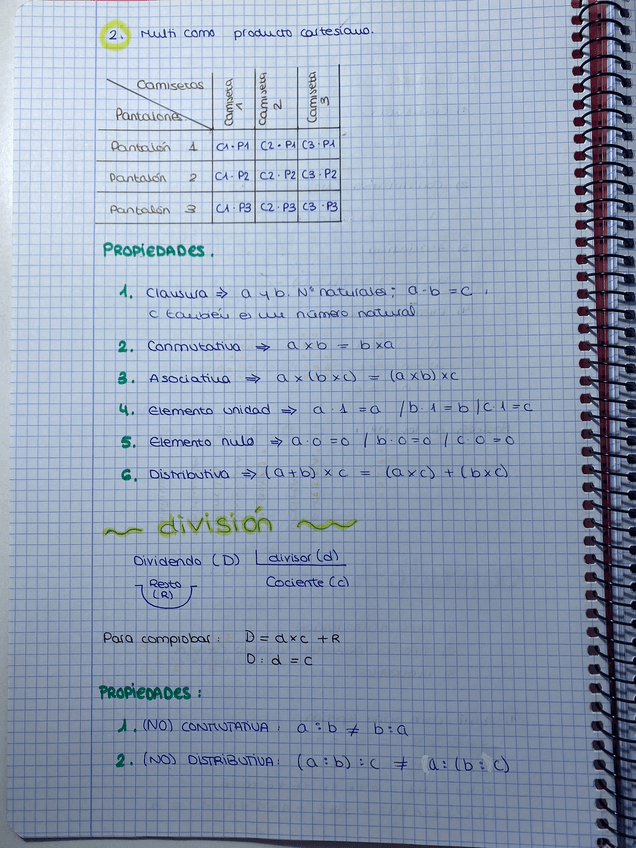 2. Multi como producto cartesiano.
Camisetas
Pantalones
Camiseta 1
Camiseta 2
Camiseta 3
Pantalón 1 C1·P1 C2·P1 C3·P1
Pantalón 2 C1·P2 C2·P2 C3·P2
Pantalón 3 C1·P3 C2·P3 C3·P3
PROPIEDADES.
1. Clausura ⇒ a y b. Nº naturales; a·b = c.
c también es un número natural
2. Conmutativa ⇒ a x b = b x a
3. Asociativa ⇒ a x (b x c) = (a x b) x c
4. Elemento unidad ⇒ a·1 = a / b·1 = b / c·1 = c
5. Elemento nulo ⇒ a·0 = 0 / b·0 = 0 / c·0 = 0
6. Distributiva ⇒ (a + b) x c = (a x c) + (b x c)
~ división ~
Dividendo (D) divisor (d)
Resto (R) Cociente (c)
Para comprobar: D = d x c + R
D : d = c
PROPIEDADES:
1. (NO) CONMUTATIVA: a : b ≠ b : a
2. (NO) DISTRIBUTIVA: (a : b) : c ≠ a : (b : c)